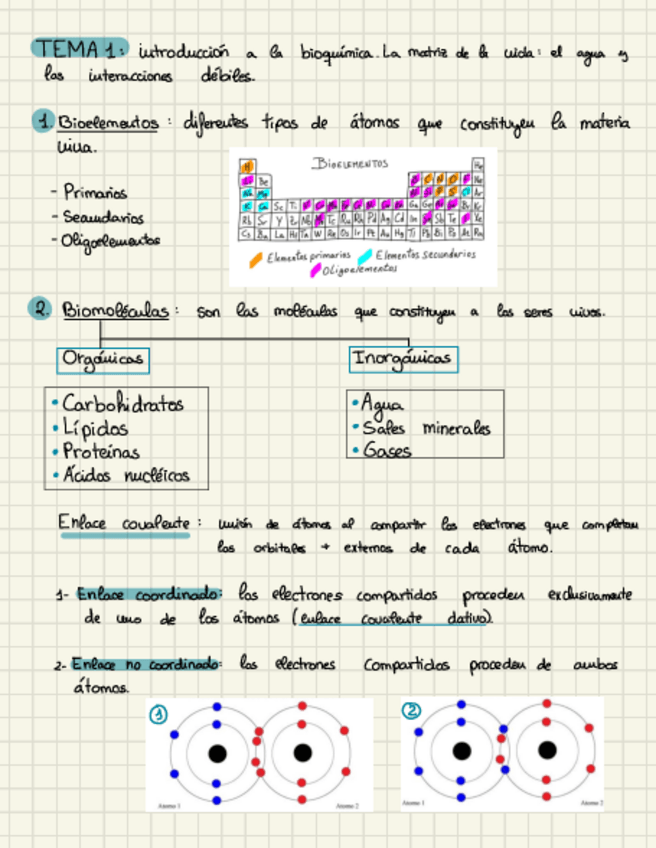 TEMA 1: introducción a la bioquímica. La matriz de la vida: el agua y
las interacciones débiles.
1. Bioelementos: diferentes tipos de átomos que constituyen la materia
viva.
- Primarios
- Secundarios
- Oligoelementos
BIOELEMENTOS
H He
Be
Sc
Rb Sr Y Pd Ag Cd In Sb Te Xe
Cs Ba La Hf Ta W Re Os Ir Pt Au Hg Tl Pb Bi Po At Rn
Elementos primarios Elementos secundarios
Oligoelementos
2. Biomoléculas: son las moléculas que constituyen a los seres vivos.
Orgánicas Inorgánicas
• Carbohidratos
• Lípidos
• Proteínas
• Ácidos nucléicos
• Agua
• Sales minerales
• Gases
Enlace covalente: unión de átomos al compartir los electrones que completan
los orbitales + externos de cada átomo.
1- Enlace coordinado: los electrones compartidos proceden exclusivamente
de uno de los átomos (enlace covalente dativo).
2- Enlace no coordinado: los electrones compartidos proceden de ambos
átomos.
1 2
Atomo 1 Atomo 2 Atomo 1 Atomo 2